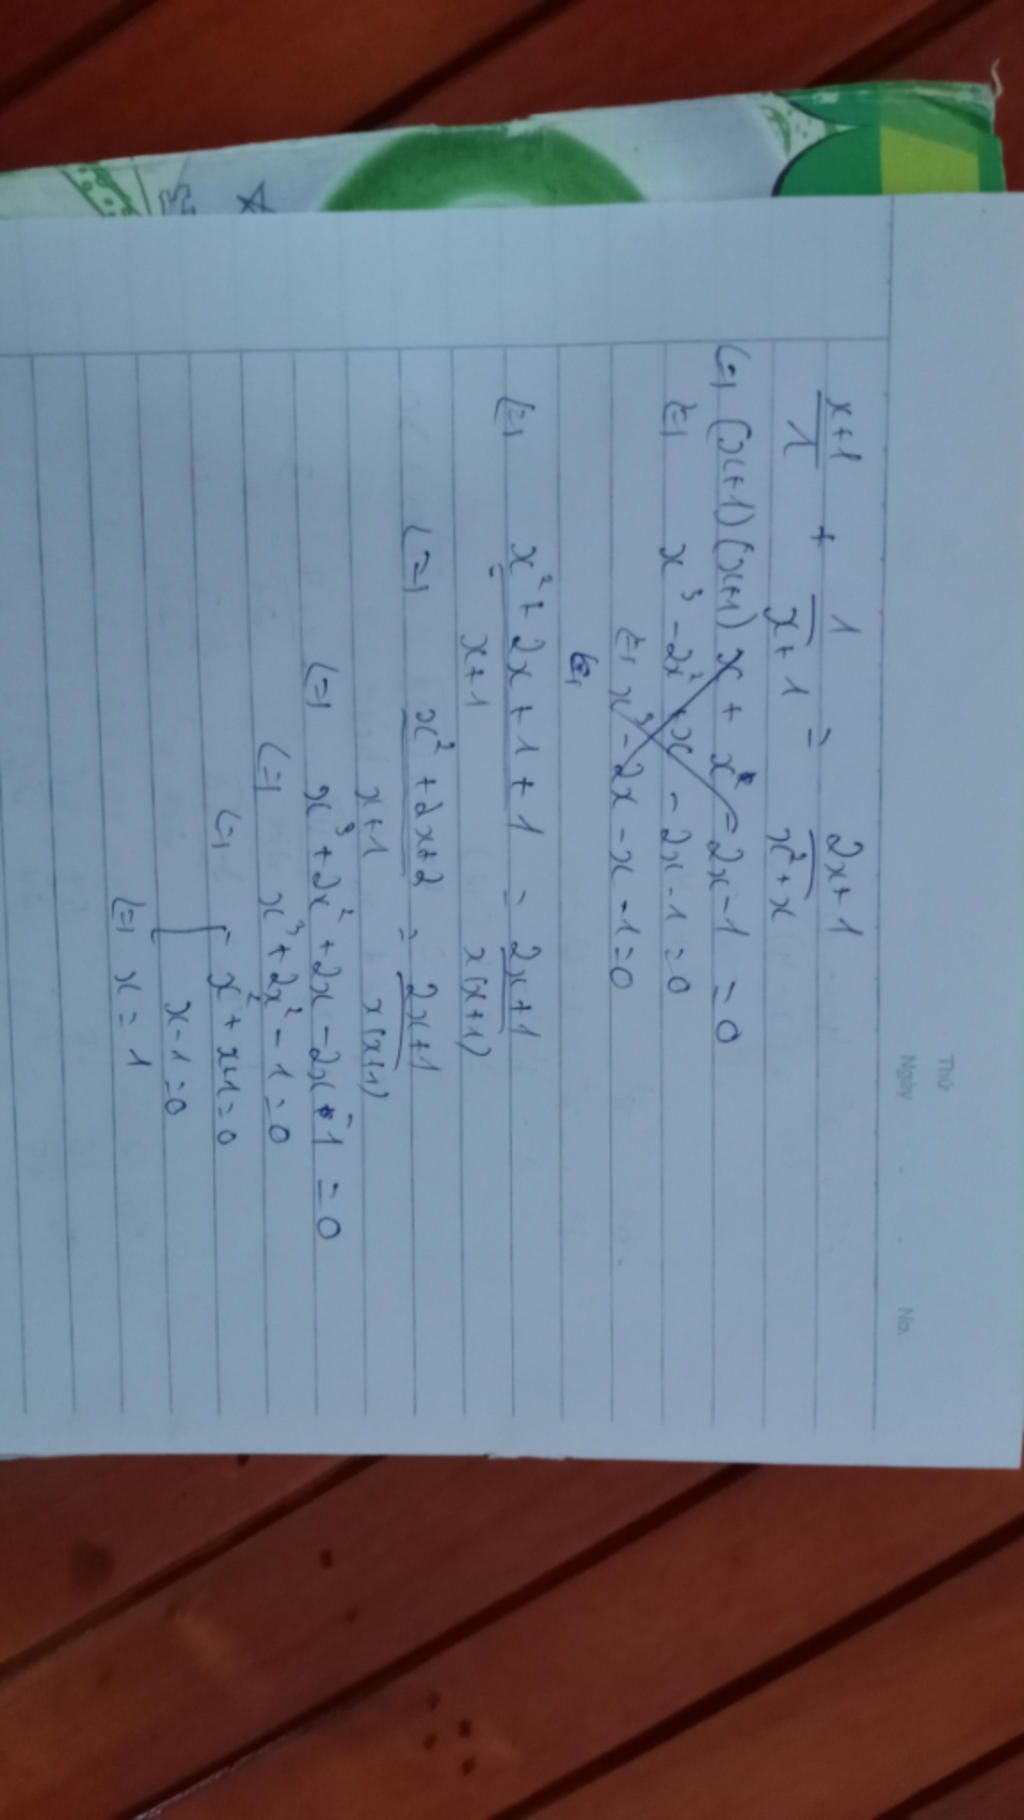 Thứ
Ngày
No.
x+1/1 + 1/x+1 = 2x+1/x²+x
(=) (x+1)(x+1)x + x² - 2x-1 = 0
(=) x³ - 2x² + x - 2x - 1 = 0
(=) x³ - 2x - x - 1 = 0
(=) x² + 2x + 1 + 1/x+1 = 2x+1/x(x+1)
(=) x² + 2x + 2/x+1 = 2x+1/x(x+1)
(=) x³ + 2x² + 2x - 2x - 1 = 0
(=) x³ + 2x² - 1 = 0
(=) [ x² + x-1 = 0
x - 1 = 0
(=) x = 1